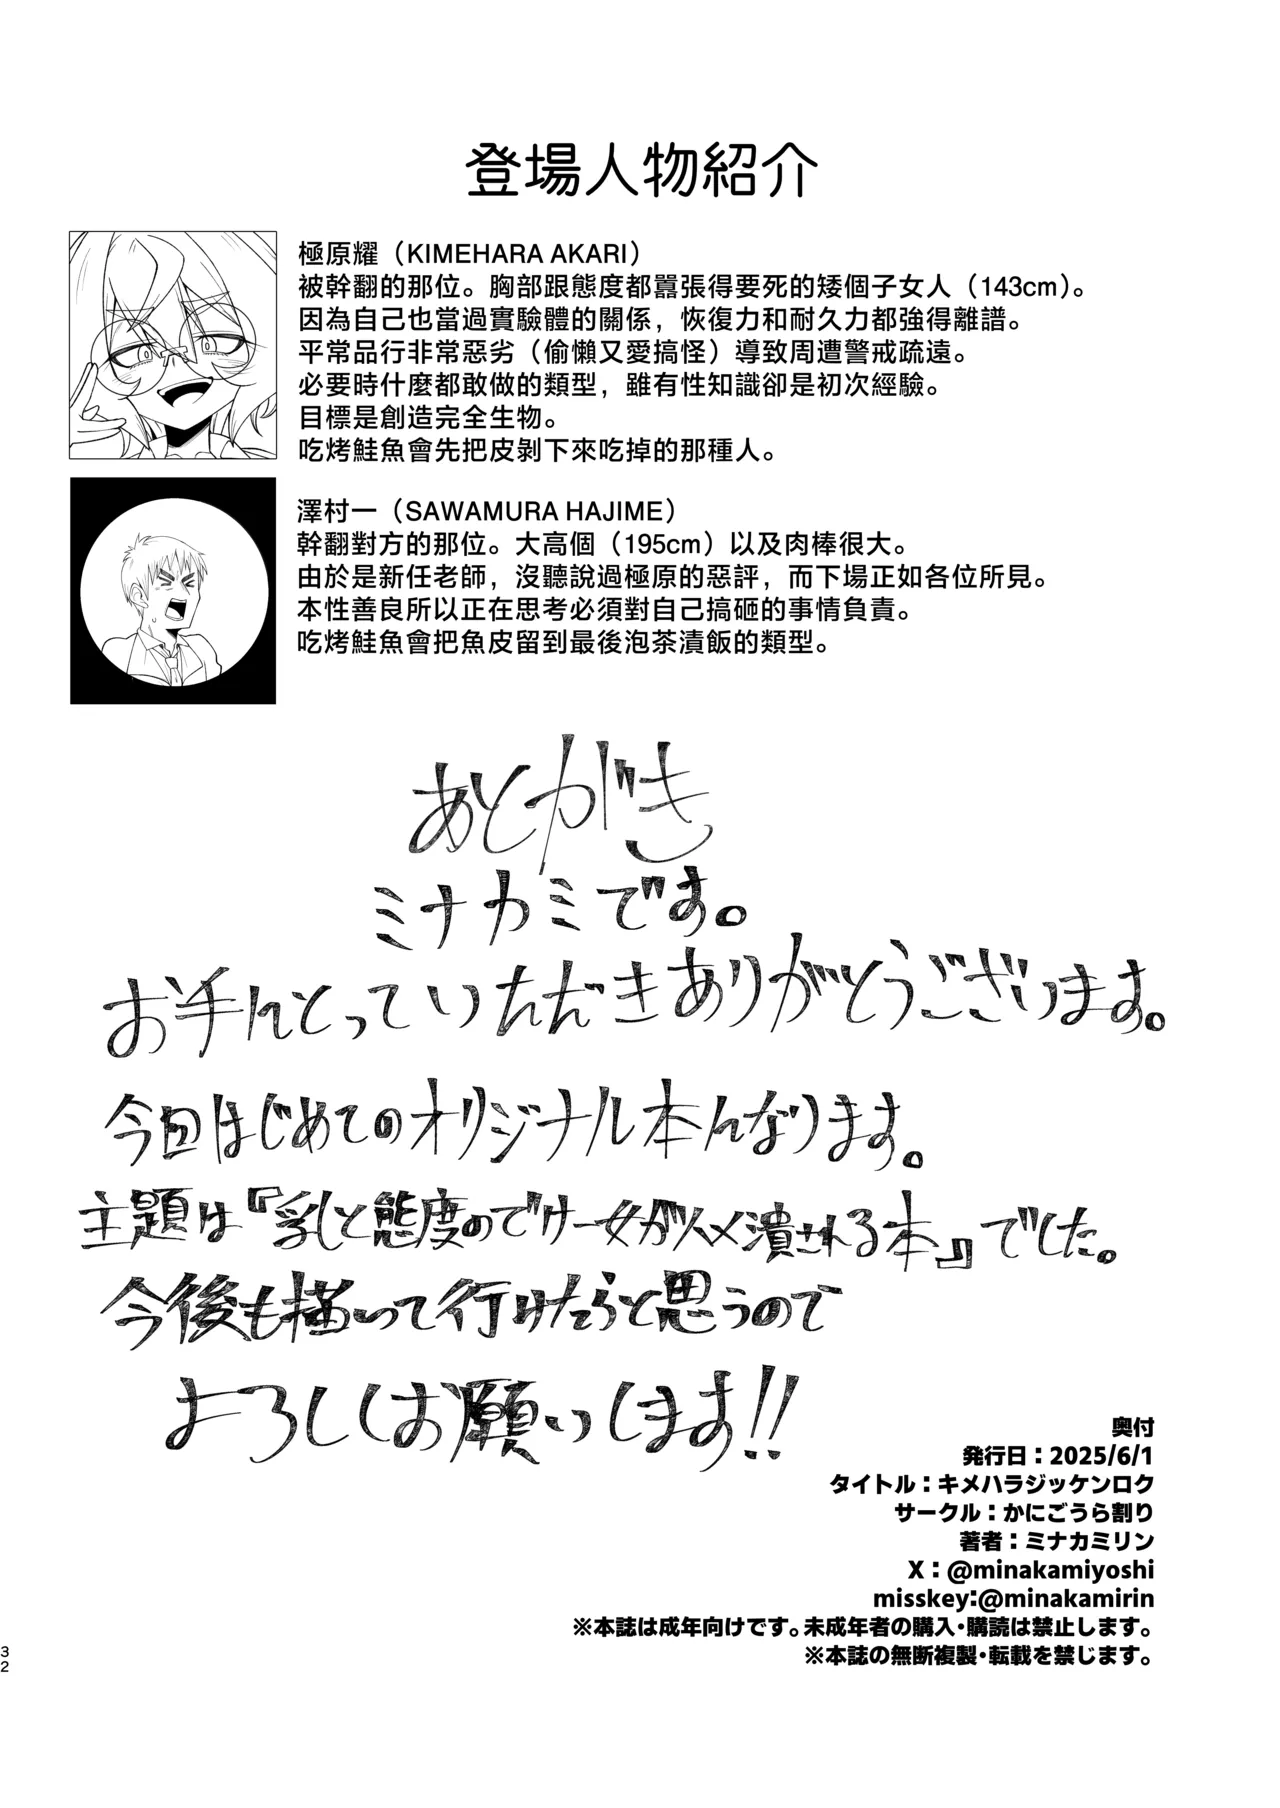 登場人物紹介
極原耀（KIMEHARA AKARI）
被幹翻的那位。胸部跟態度都囂張得要死的矮個子女人（143cm）。
因為自己也當過實驗體的關係，恢復力和耐久力都強得離譜。
平常品行非常惡劣（偷懶又愛搞怪）導致周遭警戒疏遠。
必要時什麼都敢做的類型，雖有性知識卻是初次經驗。
目標是創造完全生物。
吃烤鮭魚會先把皮剝下來吃掉的那種人。
澤村一（SAWAMURA HAJIME）
幹翻對方的那位。大高個（195cm）以及肉棒很大。
由於是新任老師，沒聽說過極原的惡評，而下場正如各位所見。
本性善良所以正在思考必須對自己搞砸的事情負責。
吃烤鮭魚會把魚皮留到最後泡茶漬飯的類型。
あとがき
ミナカミです。
お手にとっていただきありがとうございます。
今回はじめてのオリジナル本になります。
主題は『乳と態度のでけー女がハメ潰される本』でした。
今後も描いて行けたらと思うので
よろしくお願いします!!
奥付
発行日：2025/6/1
タイトル：キメハラジッケンロク
サークル：かにごうら割り
著者：ミナカミリン
X：@minakamiyoshi
misskey:@minakamirin
※本誌は成年向けです。未成年者の購入・購読は禁止します。
※本誌の無断複製・転載を禁じます。
32